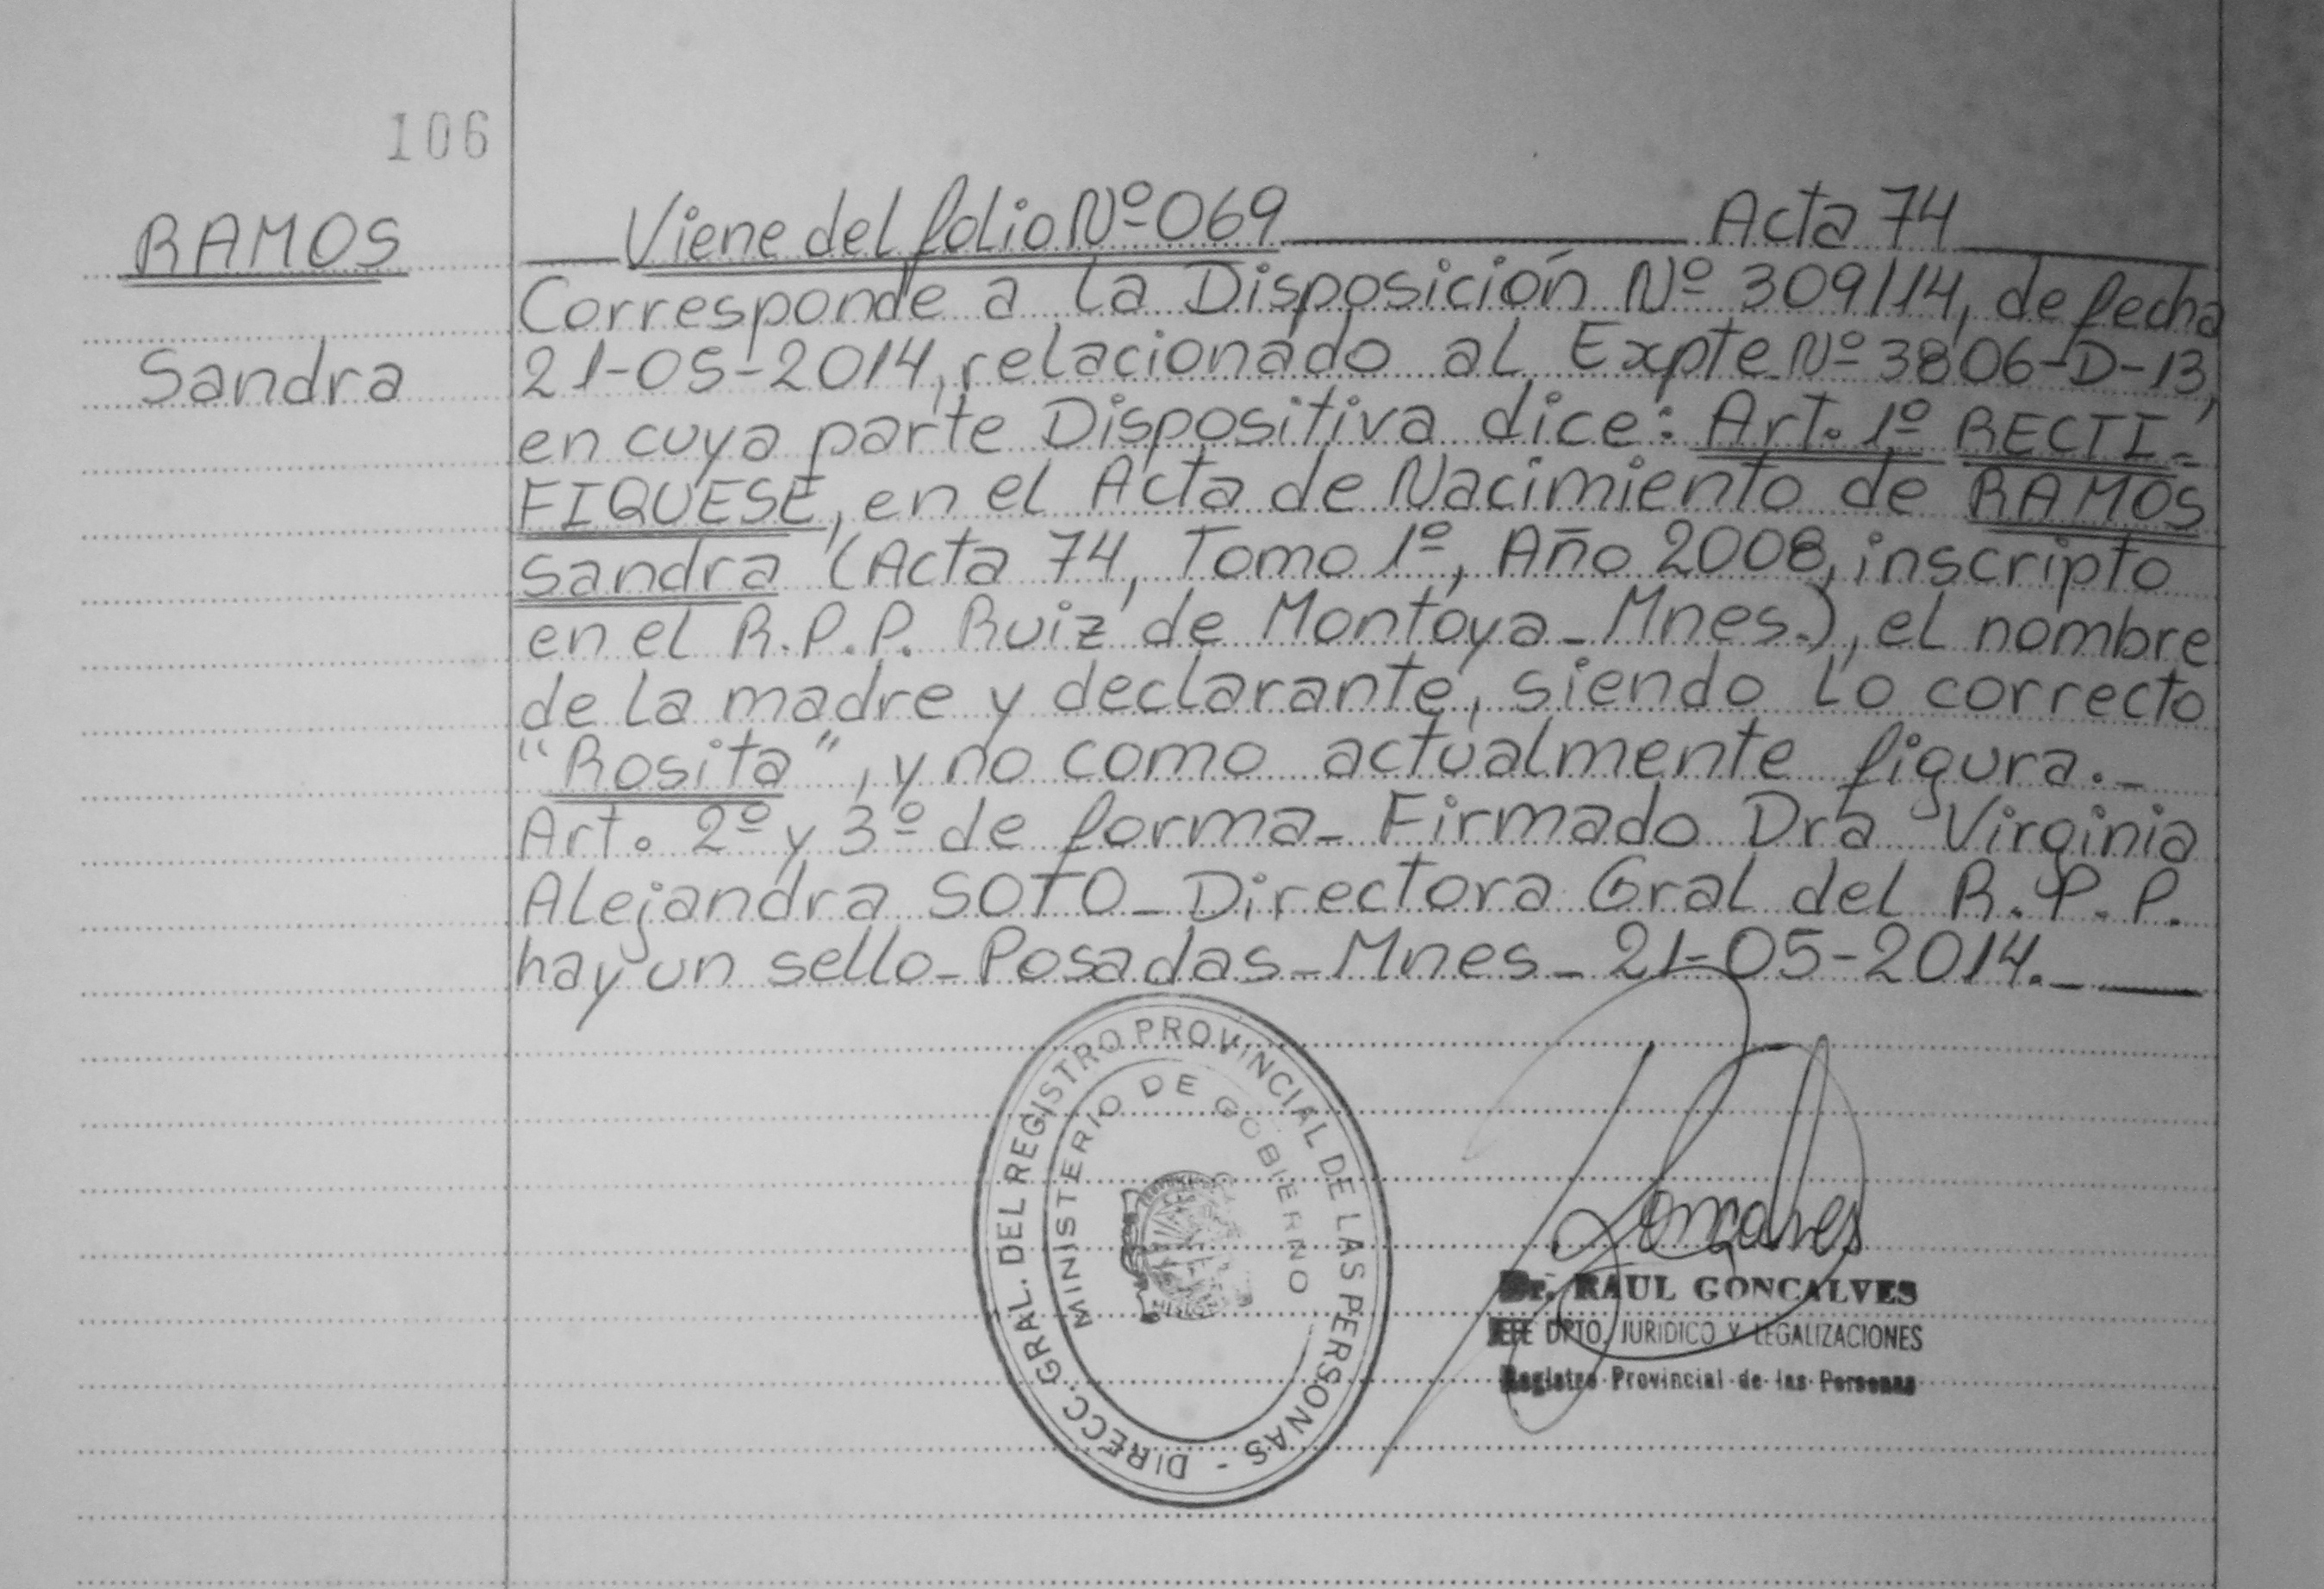 106
RAMOS
Sandra
Viene del folio Nº 069 Acta 74
Corresponde a la Disposición Nº 309/14, de fecha
21-05-2014, relacionado al Expte Nº 3806-D-13,
en cuya parte Dispositiva dice: Art. 1º RECTI-
FIQUESE, en el Acta de Nacimiento de RAMOS
Sandra (Acta 74, Tomo 1º, Año 2008, inscripto
en el R.P.P. Ruiz de Montoya - Mnes.), el nombre
de la madre y declarante, siendo lo correcto
"Rosita", y no como actualmente figura.-
Art. 2º y 3º de forma - Firmado Dra Virginia
Alejandra SOTO - Directora Gral del R.P.P.
hay un sello - Posadas - Mnes - 21-05-2014.-
DIRECC. GRAL. DEL REGISTRO PROVINCIAL DE LAS PERSONAS -
MINISTERIO DE GOBIERNO
Goncalves
Dr. RAUL GONCALVES
JEFE DPTO. JURIDICO Y LEGALIZACIONES
Registro Provincial de las Personas